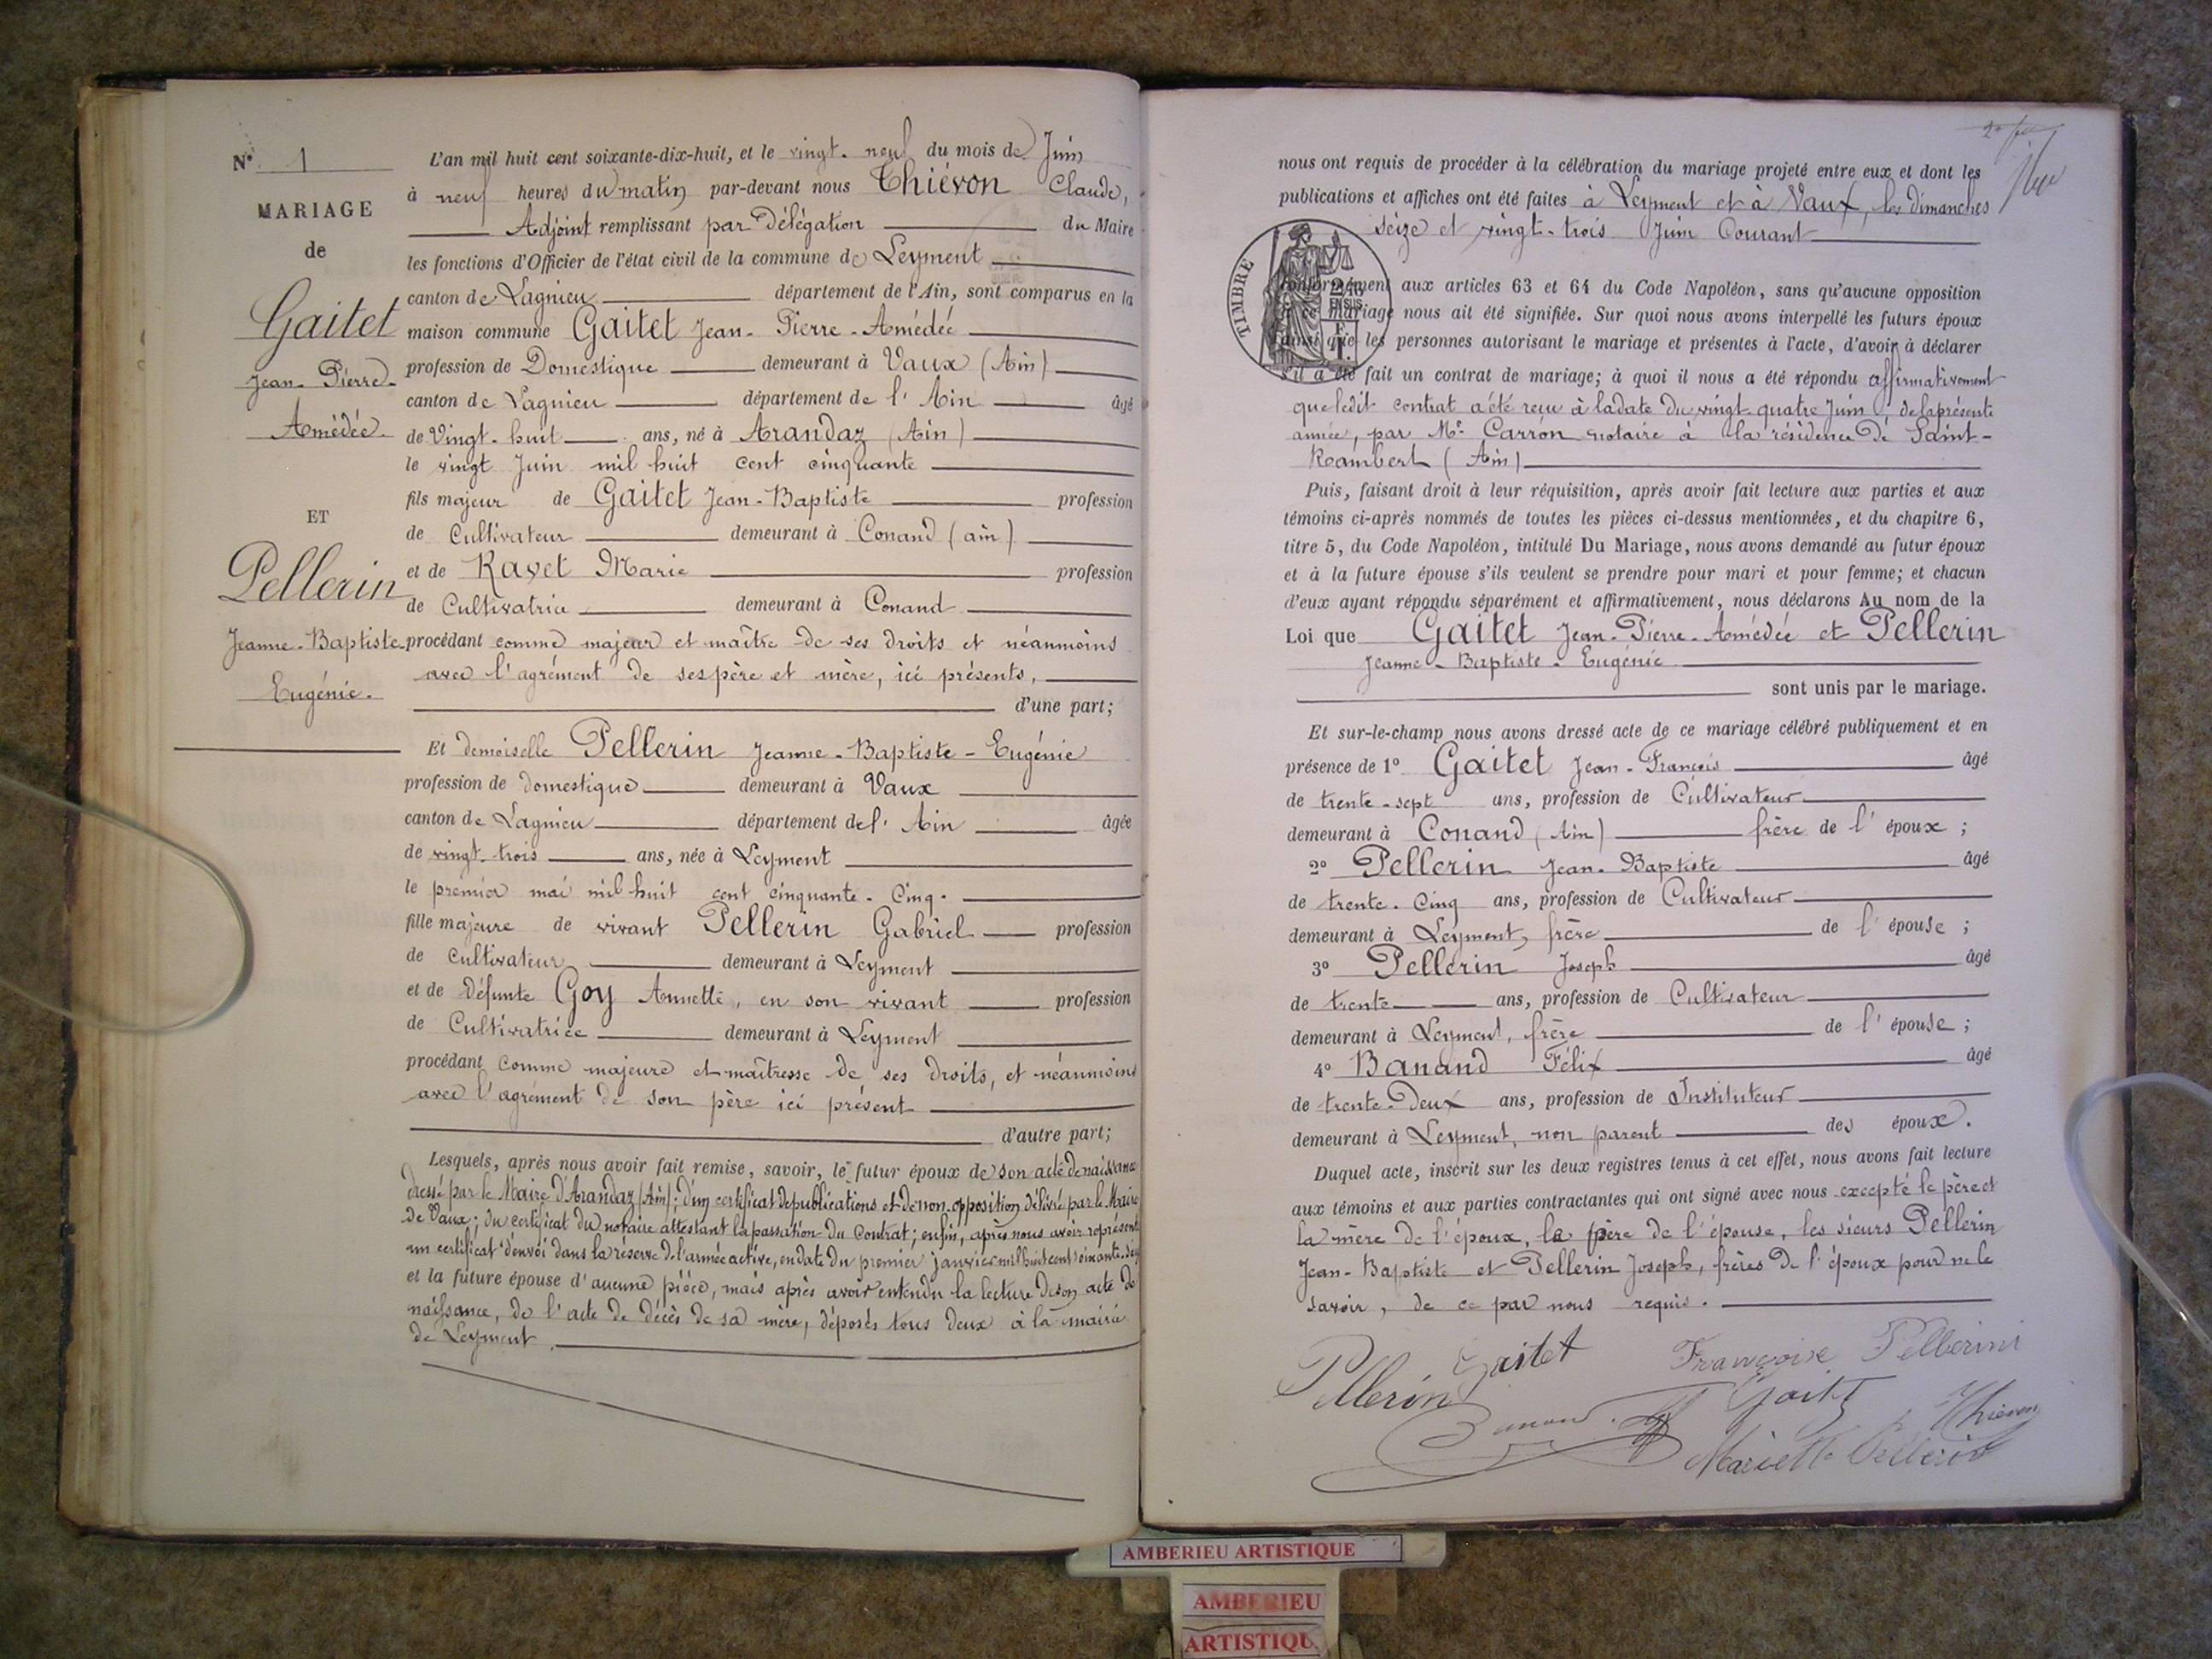 N° 1
MARIAGE
de
Gaitet
Jean-Pierre-
Amédée.
ET
Pellerin
Jeanne-Baptiste-
Eugénie.
L'an mil huit cent soixante-dix-huit, et le vingt-neuf du mois de Juin
à neuf heures du matin par-devant nous Thiévon Claude,
Adjoint remplissant par Délégation du Maire
les fonctions d'Officier de l'état civil de la commune de Leyment
canton de Lagnieu département de l'Ain, sont comparus en la
maison commune Gaitet Jean-Pierre-Amédée
profession de Domestique demeurant à Vaux (Ain)
canton de Lagnieu département de l'Ain âgé
de Vingt-huit ans, né à Arandaz (Ain)
le vingt Juin mil huit cent cinquante
fils majeur de Gaitet Jean-Baptiste profession
de Cultivateur demeurant à Conand (ain)
et de Ravet Marie profession
de Cultivatrice demeurant à Conand
procédant comme majeur et maître de ses droits et néanmoins
avec l'agrément de ses père et mère, ici présents,
d'une part;
Et demoiselle Pellerin Jeanne-Baptiste-Eugénie
profession de domestique demeurant à Vaux
canton de Lagnieu département de l'Ain âgée
de vingt-trois ans, née à Leyment
le premier mai mil huit cent cinquante-cinq.
fille majeure de vivant Pellerin Gabriel profession
de Cultivateur demeurant à Leyment
et de Défunte Goy Annette, en son vivant profession
de Cultivatrice demeurant à Leyment
procédant comme majeure et maîtresse de ses droits, et néanmoins
avec l'agrément de son père ici présent
d'autre part;
Lesquels, après nous avoir fait remise, savoir, le futur époux de son acte de naissance
dressé par le Maire d'Arandaz (Ain); d'un certificat de publications et de non-opposition délivré par le Maire
de Vaux; du certificat du notaire attestant la passation du Contrat; enfin, après nous avoir représenté
un certificat d'envoi dans la réserve de l'armée active, en date du premier janvier mil huit cent
et la future épouse d'aucune pièce, mais après avoir entendu la lecture de son acte de
naissance, de l'acte de décès de sa mère, déposés tous deux à la mairie
de Leyment.
nous ont requis de procéder à la célébration du mariage projeté entre eux et dont les
publications et affiches ont été faites à Leyment et à Vaux, les dimanches
seize et vingt-trois Juin Courant
TIMBRE
EN SUS
conformément aux articles 63 et 64 du Code Napoléon, sans qu'aucune opposition
à ce mariage nous ait été signifiée. Sur quoi nous avons interpellé les futurs époux
ainsi que les personnes autorisant le mariage et présentes à l'acte, d'avoir à déclarer
s'il a été fait un contrat de mariage; à quoi il nous a été répondu affirmativement
que ledit contrat a été reçu à la date du vingt-quatre Juin, de la présente
année, par Me. Carron notaire à la résidence de Saint-
Rambert (Ain)
Puis, faisant droit à leur réquisition, après avoir fait lecture aux parties et aux
témoins ci-après nommés de toutes les pièces ci-dessus mentionnées, et du chapitre 6,
titre 5, du Code Napoléon, intitulé Du Mariage, nous avons demandé au futur époux
et à la future épouse s'ils veulent se prendre pour mari et pour femme; et chacun
d'eux ayant répondu séparément et affirmativement, nous déclarons Au nom de la
Loi que Gaitet Jean-Pierre-Amédée et Pellerin
Jeanne-Baptiste-Eugénie
sont unis par le mariage.
Et sur-le-champ nous avons dressé acte de ce mariage célébré publiquement et en
présence de 1° Gaitet Jean-François âgé
de trente-sept ans, profession de Cultivateur
demeurant à Conand (Ain) frère de l'époux;
2° Pellerin Jean-Baptiste âgé
de trente-Cinq ans, profession de Cultivateur
demeurant à Leyment, frère de l'épouse;
3° Pellerin Joseph âgé
de trente ans, profession de Cultivateur
demeurant à Leyment, frère de l'épouse;
4° Banand Félix âgé
de trente-Deux ans, profession de Instituteur
demeurant à Leyment, non parent des époux.
Duquel acte, inscrit sur les deux registres tenus à cet effet, nous avons fait lecture
aux témoins et aux parties contractantes qui ont signé avec nous excepté le père et
la mère de l'époux, le père de l'épouse, les sieurs Pellerin
Jean-Baptiste et Pellerin Joseph, frères de l'époux pour ne le
savoir, de ce par nous requis.
Gaitet Françoise Pellerini
Pellerin Gaitet
Banand Thiévon
Mariette Pellerin
AMBERIEU ARTISTIQUE
AMBERIEU
ARTISTIQU